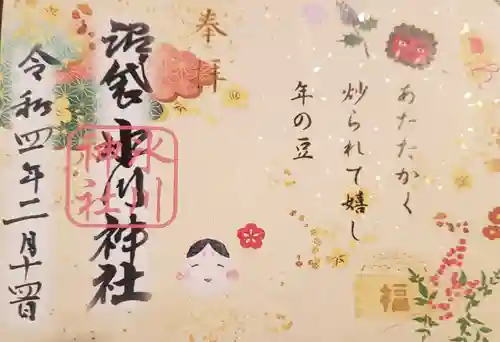 奉拝
あたたかく
炒られて嬉し
年の豆
沼袋氷川神社
氷川
神社
令和四年二月十四日
福